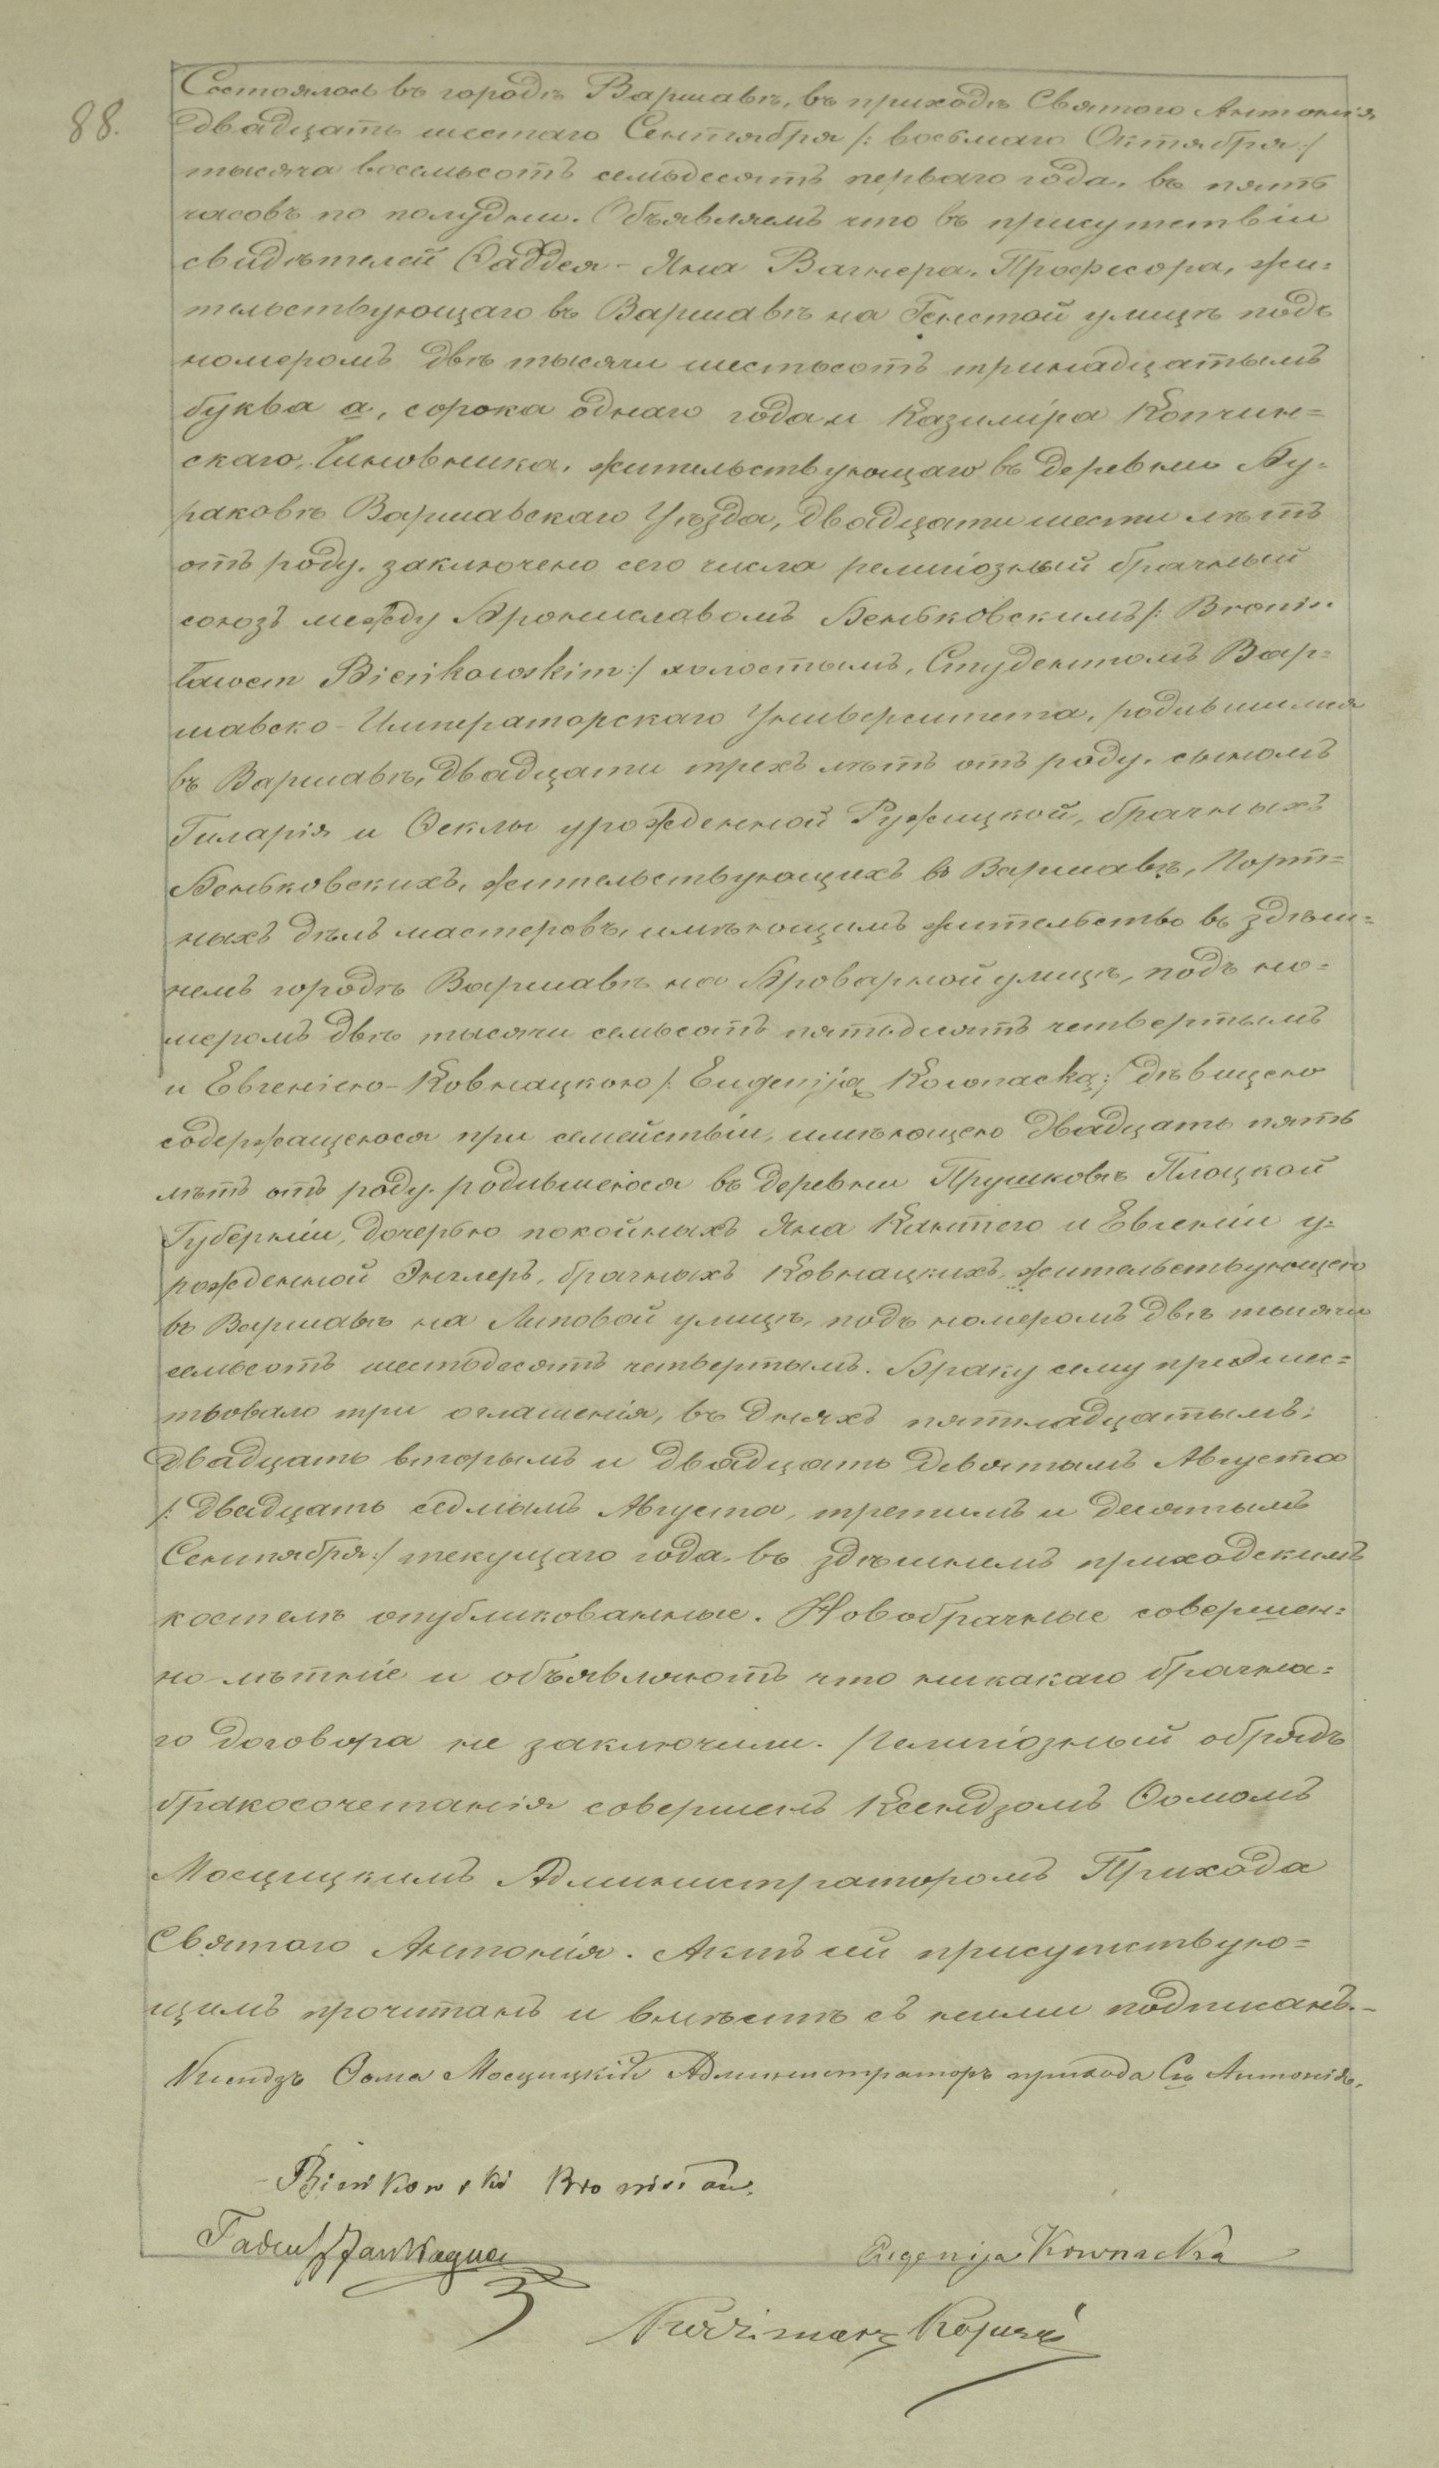 88.
Состоялось въ городѣ Варшавѣ, въ приходѣ Святого Антонія
двадцать шестаго Сентября /: восьмаго Октября :/
тысяча восемьсотъ семьдесятъ перваго года, въ пять
часовъ по полудни. Объявляемъ что въ присутствіи
свидѣтелей Фаддея - Яна Вагнера, Професора, жи=
тельствующаго въ Варшавѣ на Генстой улицѣ подъ
номеромъ двѣ тысячи шестьсотъ тринадцатымъ
буква а, сорока однаго года и Казиміра Копчин=
скаго, Чиновника, жительствующаго въ деревни Бу=
раковѣ Варшавскаго Уѣзда, двадцати шести лѣтъ
отъ роду, заключено сего числа религіозный брачный
союзъ между Брониславомъ Беньковскимъ /: Broni=
sławem Bieńkowskim :/ холостымъ, Студентомъ Вар=
шавско - Императорскаго Университета, родившимся
въ Варшавѣ, двадцати трехъ лѣтъ отъ роду, сыномъ
Гиларія и Феклы урожденной Ружицкой, брачныхъ
Беньковскихъ, жительствующихъ въ Варшавѣ, Порт=
ныхъ дѣлъ мастеровъ, имѣющимъ жительство въ здѣш=
немъ городѣ Варшавѣ на Броварной улицѣ, подъ но=
меромъ двѣ тысячи семьсотъ пятьдесятъ четвертымъ
и Евгеніею - Ковнацкою /: Eugeniją Kownacką :/ дѣвицею
содержащеюся при семействіи, имѣющею двадцать пять
лѣтъ отъ роду, родившеюся въ деревни Прушковѣ Плоцкой
Губерніи, дочерью покойныхъ Яна Кантего и Евгеніи у=
рожденной Энглеръ, брачныхъ Ковнацкихъ, жительствующею
въ Варшавѣ на Липовой улицѣ, подъ номеромъ двѣ тысячи
семьсотъ шестьдесятъ четвертымъ. Браку сему предшес=
твовало три оглашенія, въ дняхъ пятнадцатымъ,
двадцать вторымъ и двадцать девятымъ Августа
/: двадцать седмымъ Августа, третимъ и десятымъ
Сентября :/ текущаго года, въ здѣшнимъ приходскимъ
костелѣ опубликованные. Новобрачные совершен=
но-лѣтніе и объявляютъ что никакаго брачна=
го договора не заключили. Религіозный обрядъ
бракосочетанія совершенъ Ксендзомъ Фомомъ
Мосцицкимъ Администраторомъ Прихода
Святого Антонія. Актъ сей присутствую=
щимъ прочитанъ и вмѣстѣ съ ними подписанъ. -
Ксендзъ Фома Мосцицкій Администраторъ прихода Св Антонія.
Bieńkowski Bronisław.
Tadeusz Jan Wagner
Eugenija Kownacka
Kazimierz